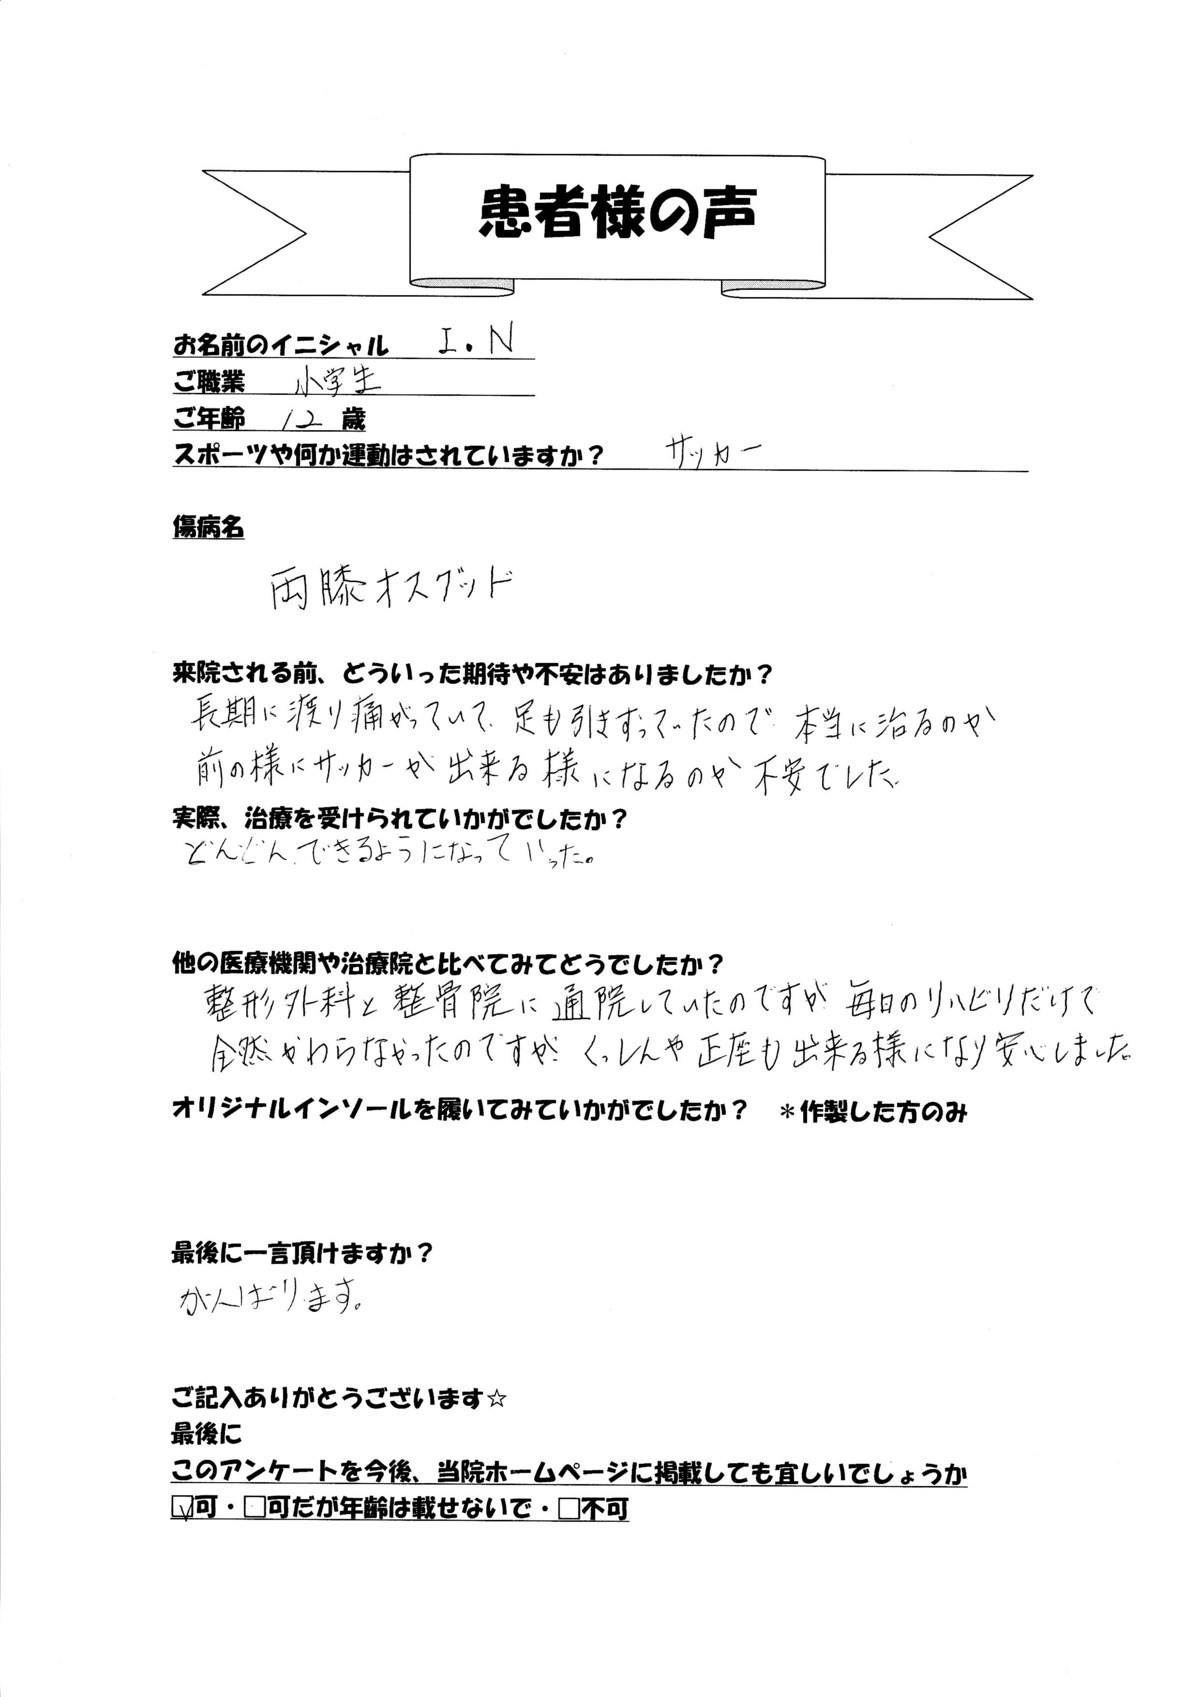 患者様の声
お名前のイニシャル I.N
ご職業 小学生
ご年齢 12 歳
スポーツや何か運動はされていますか? サッカー
傷病名
両膝オスグッド
来院される前、どういった期待や不安はありましたか?
長期に渡り痛がっていて、足も引きずっていたので 本当に治るのか
前の様にサッカーが出来る様になるのか不安でした。
実際、治療を受けられていかがでしたか?
どんどん、できるようになっていった。
他の医療機関や治療院と比べてみてどうでしたか?
整形外科と整骨院に通院していたのですが毎日のリハビリだけで
全然かわらなかったのですが、くっしんや正座も出来る様になり安心しました。
オリジナルインソールを履いてみていかがでしたか? *作製した方のみ
最後に一言頂けますか?
がんばります。
ご記入ありがとうございます☆
最後に
このアンケートを今後、当院ホームページに掲載しても宜しいでしょうか
☑可・□可だが年齢は載せないで・□不可